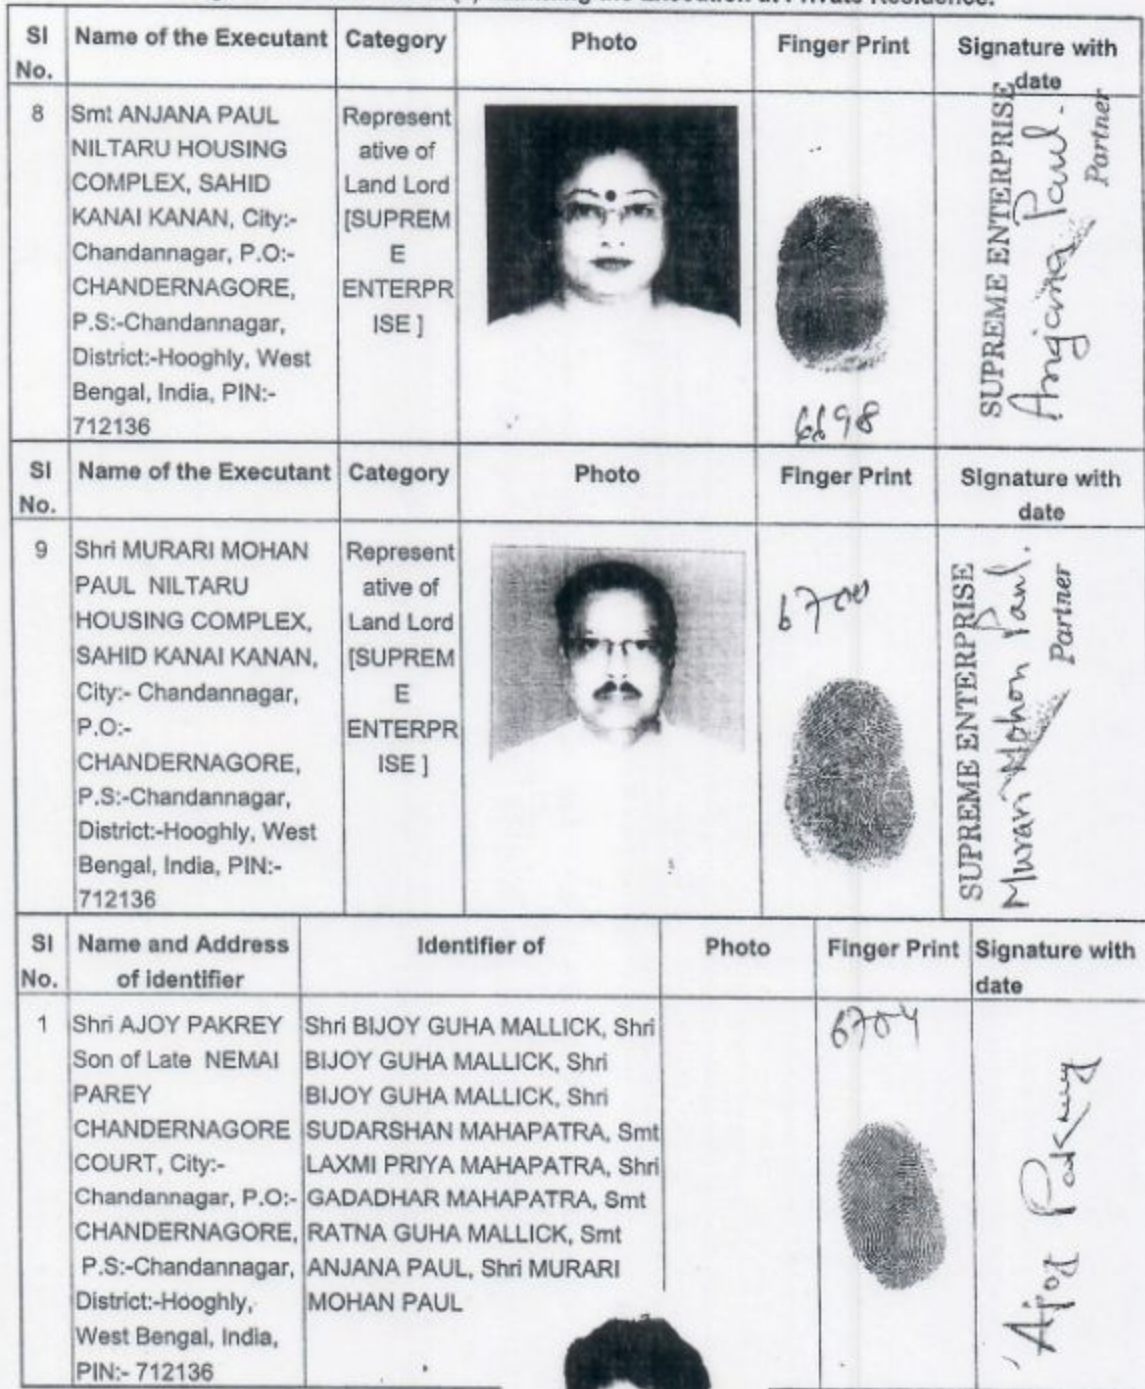 the Execution at Private Residence.
SI No. Name of the Executant Category Photo Finger Print Signature with date
8 Smt ANJANA PAUL
NILTARU HOUSING
COMPLEX, SAHID
KANAI KANAN, City:-
Chandannagar, P.O:-
CHANDERNAGORE,
P.S:-Chandannagar,
District:-Hooghly, West
Bengal, India, PIN:-
712136
Represent
ative of
Land Lord
[SUPREM
E
ENTERPR
ISE ]
6698
SUPREME ENTERPRISE
Anjana Paul.
Partner
SI No. Name of the Executant Category Photo Finger Print Signature with date
9 Shri MURARI MOHAN
PAUL NILTARU
HOUSING COMPLEX,
SAHID KANAI KANAN,
City:- Chandannagar,
P.O:-
CHANDERNAGORE,
P.S:-Chandannagar,
District:-Hooghly, West
Bengal, India, PIN:-
712136
Represent
ative of
Land Lord
[SUPREM
E
ENTERPR
ISE ]
6700
SUPREME ENTERPRISE
Murari Mohon Paul.
Partner
SI No. Name and Address of identifier Identifier of Photo Finger Print Signature with date
1 Shri AJOY PAKREY
Son of Late NEMAI
PAREY
CHANDERNAGORE
COURT, City:-
Chandannagar, P.O:-
CHANDERNAGORE,
P.S:-Chandannagar,
District:-Hooghly,
West Bengal, India,
PIN:- 712136
Shri BIJOY GUHA MALLICK, Shri
BIJOY GUHA MALLICK, Shri
BIJOY GUHA MALLICK, Shri
SUDARSHAN MAHAPATRA, Smt
LAXMI PRIYA MAHAPATRA, Shri
GADADHAR MAHAPATRA, Smt
RATNA GUHA MALLICK, Smt
ANJANA PAUL, Shri MURARI
MOHAN PAUL
6704
Ajoy Pakrey